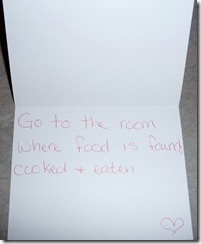 Go to the room
where food is found,
cooked + eaten